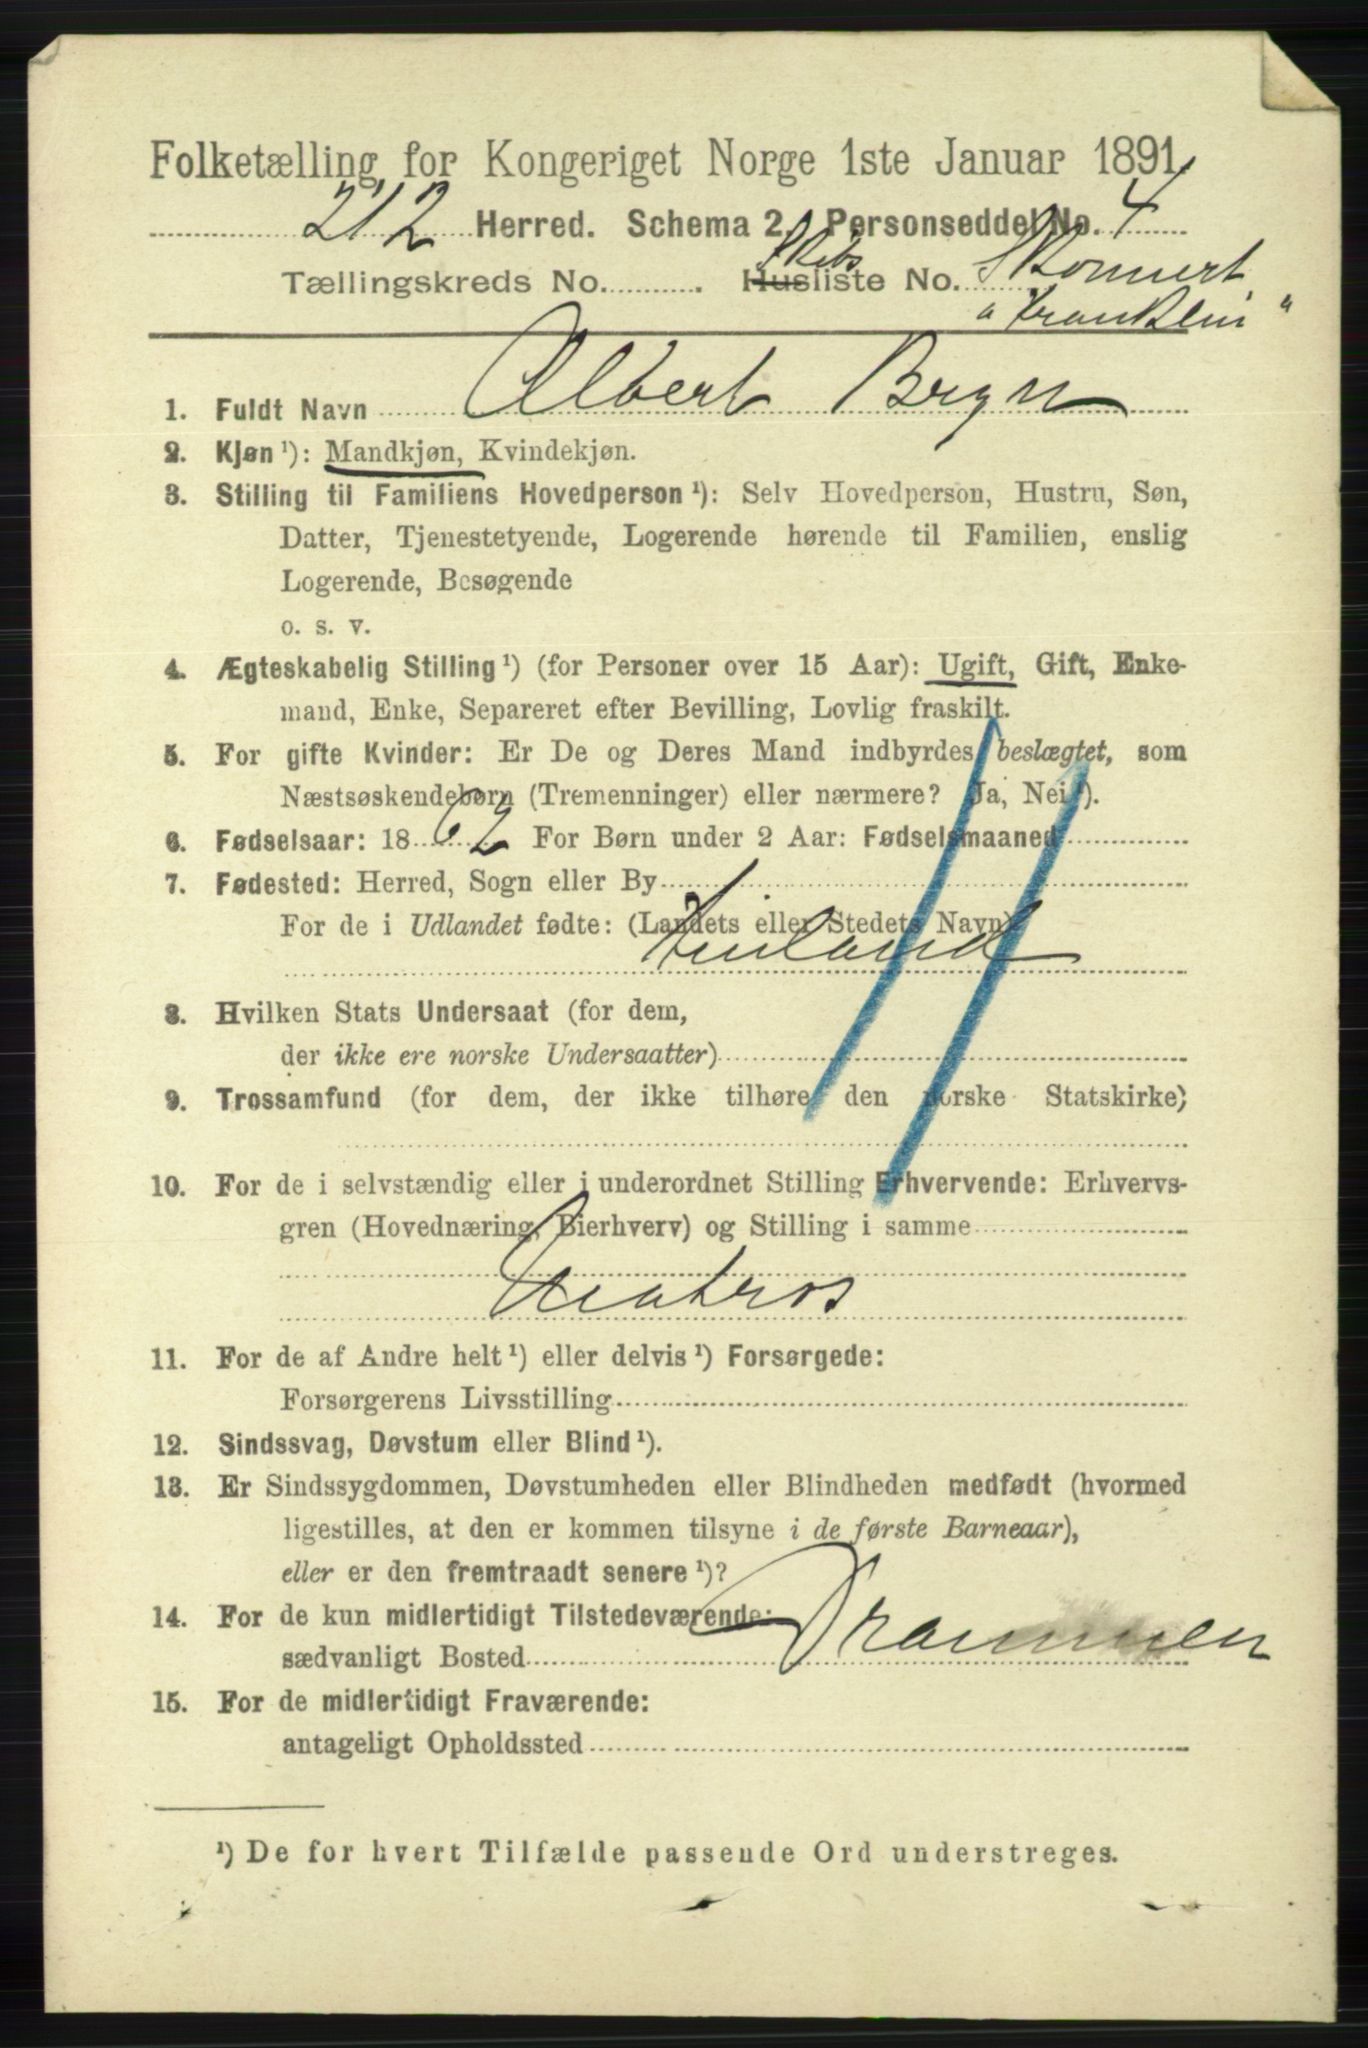 Folketælling for Kongeriget Norge 1ste Januar 1891.
212 Herred. Schema 2. Personseddel No. 4
Tællingskreds No. . Husliste No. Skibs Skonnert
"Franklin"
1. Fuldt Navn Albert Bryn
2. Kjøn ¹): Mandkjøn, Kvindekjøn.
3. Stilling til Familiens Hovedperson ¹): Selv Hovedperson, Hustru, Søn,
Datter, Tjenestetyende, Logerende hørende til Familien, enslig
Logerende, Besøgende
o. s. v.
4. Ægteskabelig Stilling ¹) (for Personer over 15 Aar): Ugift, Gift, Enke-
mand, Enke, Separeret efter Bevilling, Lovlig fraskilt.
5. For gifte Kvinder: Er De og Deres Mand indbyrdes beslægtet, som
Næstsøskendebørn (Tremenninger) eller nærmere? Ja, Nei ¹).
6. Fødselsaar: 1862 For Børn under 2 Aar: Fødselsmaaned
7. Fødested: Herred, Sogn eller By
For de i Udlandet fødte: (Landets eller Stedets Navn)
Finland
8. Hvilken Stats Undersaat (for dem,
der ikke ere norske Undersaatter)
9. Trossamfund (for dem, der ikke tilhøre den norske Statskirke)
10. For de i selvstændig eller i underordnet Stilling Erhvervende: Erhvervs-
gren (Hovednæring, Bierhverv) og Stilling i samme
Matros
11. For de af Andre helt ¹) eller delvis ¹) Forsørgede:
Forsørgerens Livsstilling
12. Sindssvag, Døvstum eller Blind ¹).
13. Er Sindssygdommen, Døvstumheden eller Blindheden medfødt (hvormed
ligestilles, at den er kommen tilsyne i de første Barneaar),
eller er den fremtraadt senere ¹)?
14. For de kun midlertidigt Tilstedeværende:
sædvanligt Bosted Drammen
15. For de midlertidigt Fraværende:
antageligt Opholdssted
¹) De for hvert Tilfælde passende Ord understreges.